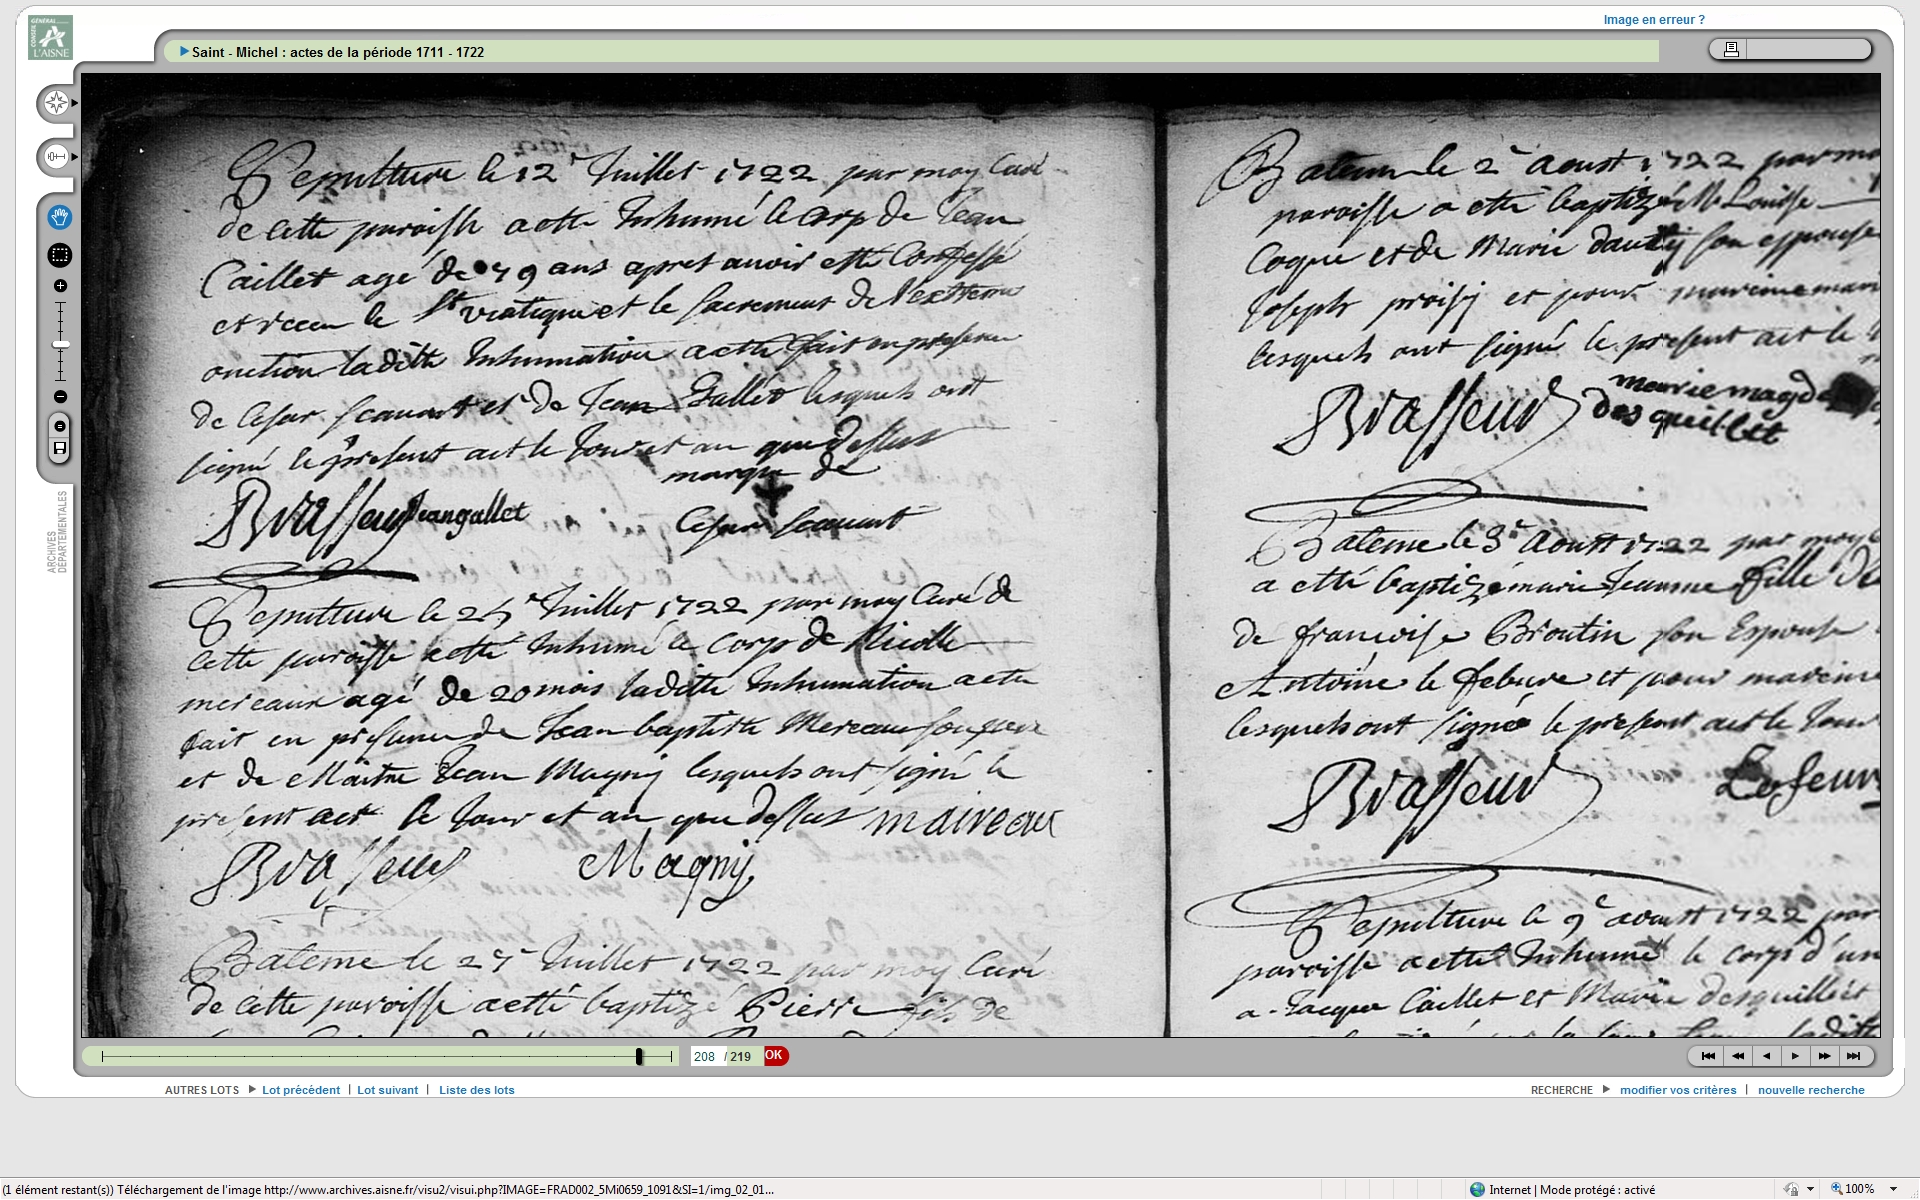 Image en erreur ?
CONSEIL GÉNÉRAL
L'AISNE
Saint - Michel : actes de la période 1711 - 1722
Sepulture le 12e Juillet 1722 par moy Curé
de cette paroisse a etté Inhumé le Corp de Jean
Caillet agé de 79 ans apres avoir etté Confessé
et receu le St viatique et le sacrement de l'extreme
onction laditte Inhumation a etté fait en presence
de Cesar Scauart et de Jean Gallet lesquels ont
signé le present act le Jour et an que dessus
marque de
Brasseur Jeangallet
Cesar Scauart
Sepulture le 25e Juillet 1722 par moy Curé de
Cette paroisse a etté Inhumé le Corp de Nicolle
mereaux agé de 20 mois laditte Inhumation a ette
fait en presence de Jean baptiste Mereaux son pere
et de Maitre Jean Magny lesquels ont signé le
présent act le Jour et an que dessus maireau
Brasseur Magny
Bateme le 27e Juillet 1722 par moy Curé
de cette paroisse a etté baptizé Pierre fils de
Bateme le 2e aoust 1722 par mo
paroisse a etté baptizé Louise
Coque et de Marie son espouse
Joseph proisy et pour mareine mari
lesquels ont signé le present act le
Brasseur
marie magd
desquillet
Bateme le 3e Aoust 1722 par moy C
a etté baptizé marie Jeanne fille de
de francoise Broutin son Espouse
Antoine le febure et pour mareine
lesquels ont signé le present act le Jour
Brasseur
Lefeur
Sepulture le 9e aoust 1722 par
paroisse a etté Inhumé le corp d'un
a Jacque Caillet et Marie desquillet
ARCHIVES
DÉPARTEMENTALES
208 / 219 OK
AUTRES LOTS Lot précédent | Lot suivant | Liste des lots
RECHERCHE modifier vos critères | nouvelle recherche
(1 élément restant(s)) Téléchargement de l'image http://www.archives.aisne.fr/visu2/visui.php?IMAGE=FRAD002_5Mi0659_1091&SI=1/img_02_01...
Internet | Mode protégé : activé
100%